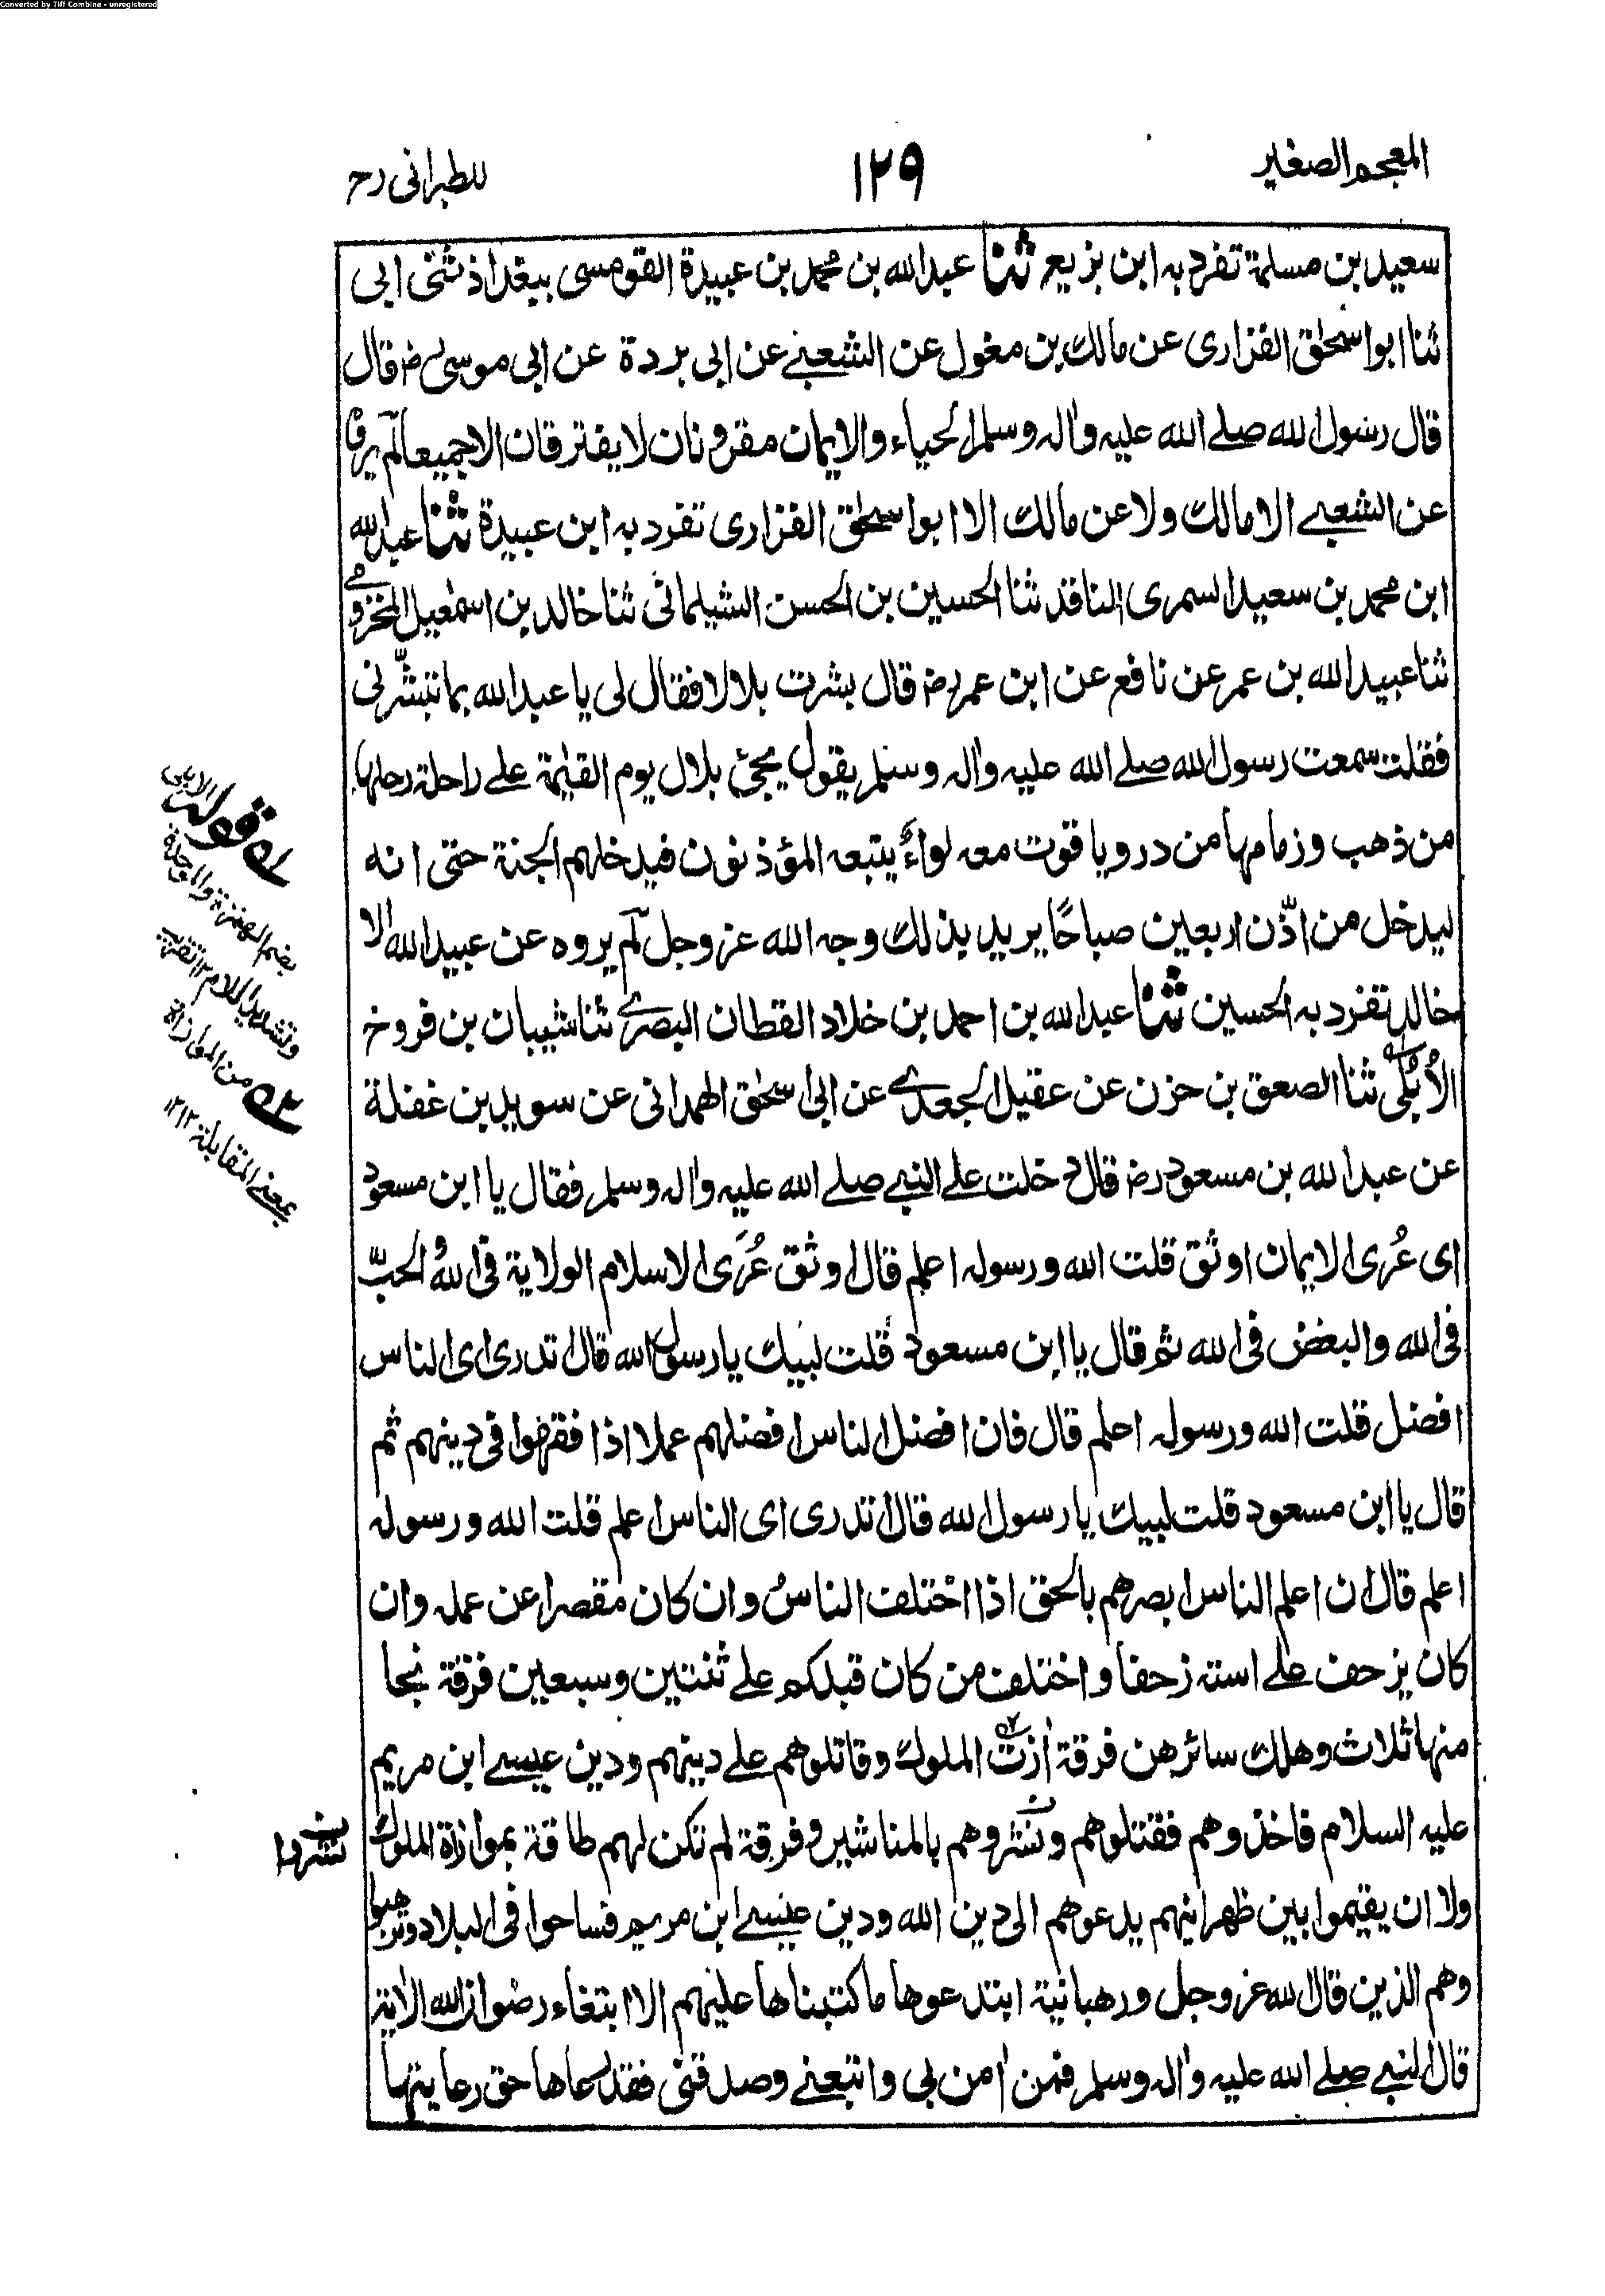 Converted by Tiff Combine - unregistered
المعجم الصغير
١٢٩
للطبرانى رح
سعيد بن مسلمة تفرد به ابن بزيع ثنا عبد الله بن محمد بن عبيدة القومسى ببغداذ ثنى ابى
ثنا ابو اسحٰق الفزارى عن مالك بن مغول عن الشعبے عن ابى بردة عن ابى موسىٰ رض قال
قال رسول الله صلے الله عليه واٰله وسلم الحياء والايمان مقرونان لا يفترقان الا جميعا لم يرو
عن الشعبے الا مالك ولا عن مالك الا ابو اسحٰق الفزارى تفرد به ابن عبيدة ثنا عبد الله
ابن محمد بن سعيد السمرى الناقد ثنا الحسين بن الحسن الشيلمانى ثنا خالد بن اسمٰعيل المخزومے
ثنا عبيد الله بن عمر عن نافع عن ابن عمر رض قال بشرت بلالا فقال لى يا عبد الله بما تبشّرنى
فقلت سمعت رسول الله صلے الله عليه واٰله وسلم يقول يجئ بلال يوم القيٰمة علے راحلة رحلها
من ذهب وزمامها من در وياقوت معه لواءٌ يتبعه المؤذنون فيدخلهم الجنة حتى انه
ليدخل من اذّن اربعين صباحًا يريد بذلك وجه الله عز وجل لم يروه عن عبيد الله الا
خالد تفرد به الحسين ثنا عبد الله بن احمد بن خلاد القطان البصرے ثنا شيبان بن فروخ
الاُبُلّى ثنا الصعق بن حزن عن عقيل الجعدے عن ابى اسحٰق الهمدانى عن سويد بن غفلة
عن عبد الله بن مسعود رض قال دخلت علے النبے صلے الله عليه واٰله وسلم فقال يا ابن مسعود
اى عُرى الايمان اوثق قلت الله ورسوله اعلم قال اوثق عُرَى الاسلام الولاية فى الله الحبّ
فى الله والبغض فى الله ثم قال يا ابن مسعود قلت لبيك يا رسول الله قال اتدرى اى الناس
افضل قلت الله ورسوله اعلم قال فان افضل الناس افضلهم عملا اذا فقهوا فى دينهم ثم
قال يا ابن مسعود قلت لبيك يا رسول الله قال اتدرى اى الناس اعلم قلت الله ورسوله
اعلم قال ان اعلم الناس ابصرهم بالحق اذا اختلف الناسُ وان كان مقصرا عن عمله وان
كان يزحف علے استه زحفا واختلف من كان قبلكم علے ثنتين وسبعين فرقة نجا
منها ثلاث وهلك سائرهن فرقة اٰزت الملوك وقاتلوهم علے دينهم ودين عيسے ابن مريم
عليه السلام فاخذوهم فقتلوهم ونشروهم بالمناشير وفرقة لم تكن لهم طاقة بموازاة الملوك
ولا ان يقيموا بين ظهرانيهم يدعوهم الى دين الله ودين عيسے ابن مريم فساحوا فى البلاد وترهبوا
وهم الذين قال الله عز وجل ورهبانية ابتدعوها ما كتبناها عليهم الا ابتغاء رضوان الله الاٰية
قال النبے صلے الله عليه واٰله وسلم فمن اٰمن بى واتبعنے وصدقنى فقد رعاها حق رعايتها
لـه قوله الابلى
بضم الهمزة والموحدة
وتشديد اللام ١٢ تقريب
من الموازاة
بمعنے المقابلة ١٢ ١٢
نشروا